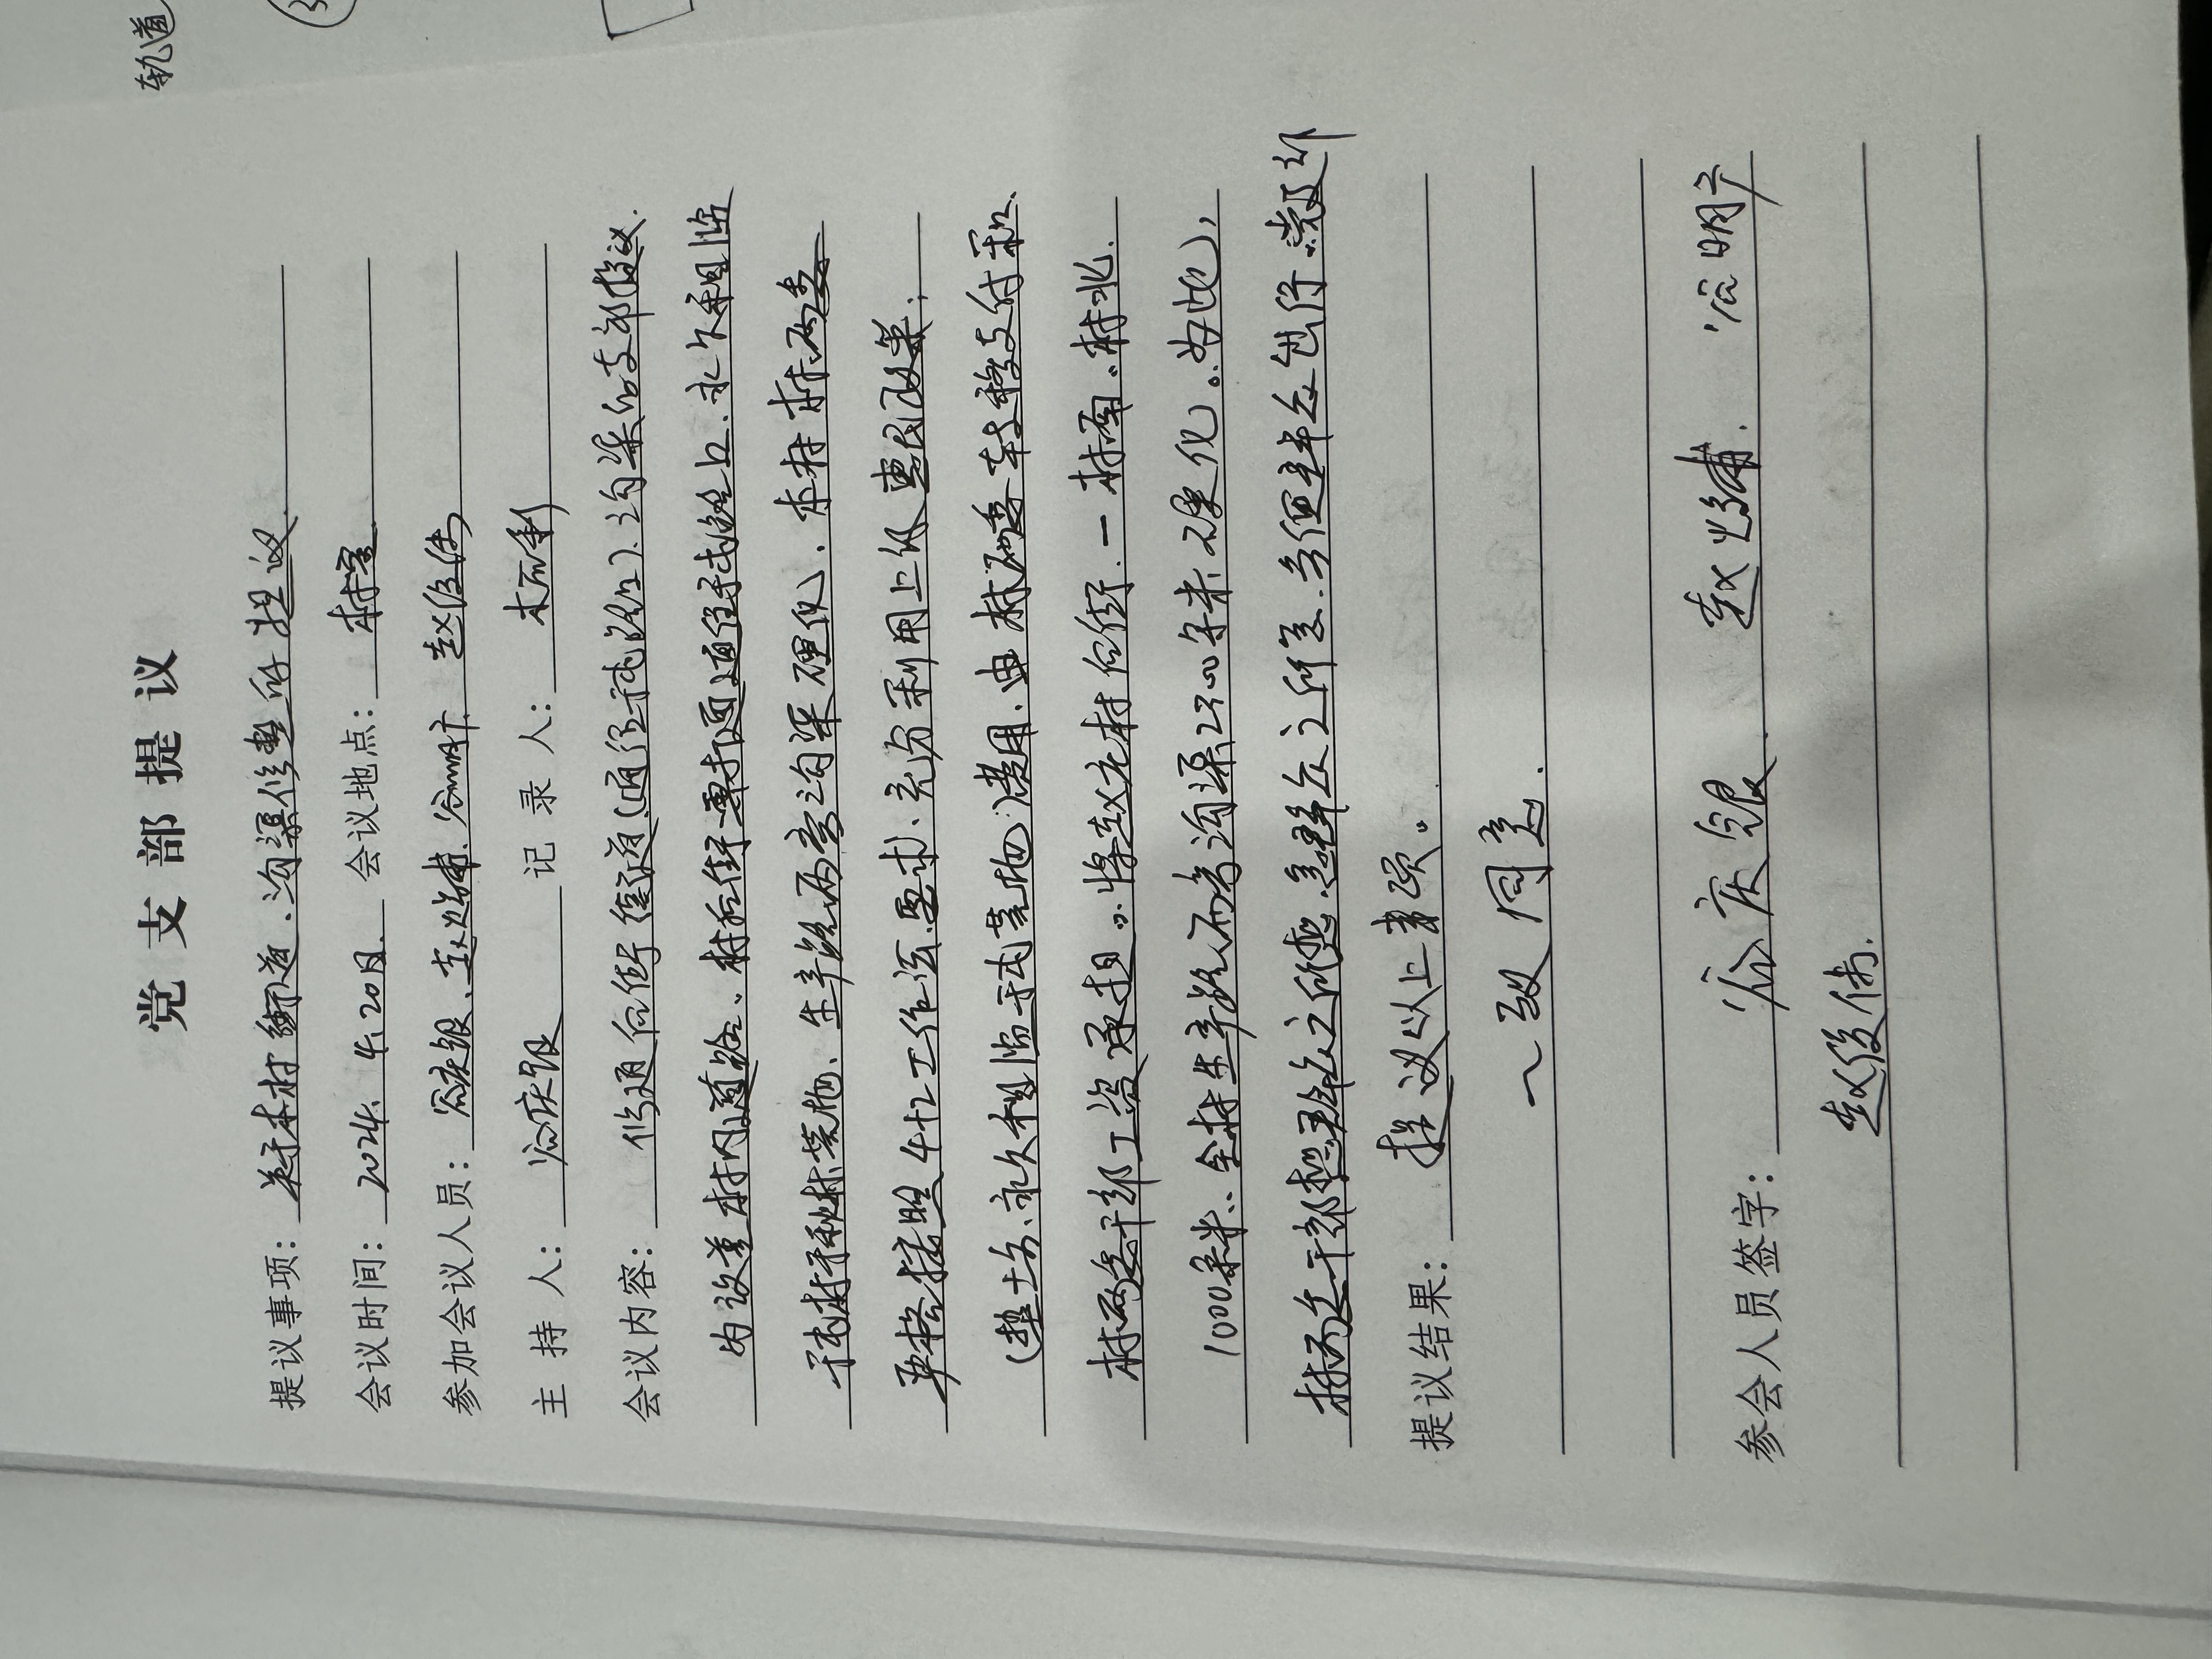 党支部提议
轨道
提议事项：关于本村街道、沟渠修整的提议
会议时间：2024、4、20日. 会议地点：村室
参加会议人员：谷庆银、赵 谷明广 赵俊伟
主持人：谷庆银 记录人：
会议内容：修通后街街道(通往于屯路口)、沟渠的支部提议.
为改善村内道路。村后街要打通通往于屯路口、永久租临
于屯村于秋林荒地、生产路两旁沟渠硬化、本村村两委
严格按照4+2工作法要求、充分利用上级惠民政策；
(垫土方、永久租临于屯荒地)费用、由村两委转移支付和
村两委干部工资承担。将赵庄村后街.一村南。村北.
1000余米、全村生产路两旁沟渠2700余米硬化。为此，
村两委干部想群众之所想、急群众之所急、方便群众出行、党支部
提议结果：提议以上事项。
一致同意.
参会人员签字：谷庆银 赵 谷明广
赵俊伟.